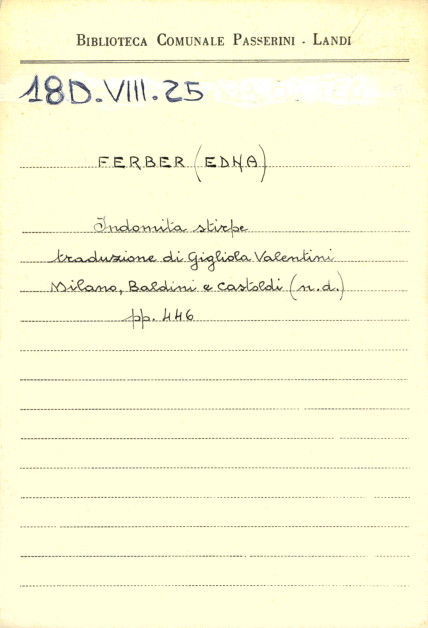 BIBLIOTECA COMUNALE PASSERINI - LANDI
18D.VIII.25
FERBER (EDNA)
Indomita stirpe
traduzione di Gigliola Valentini
Milano, Baldini e Castoldi (n.d.)
pp. 446